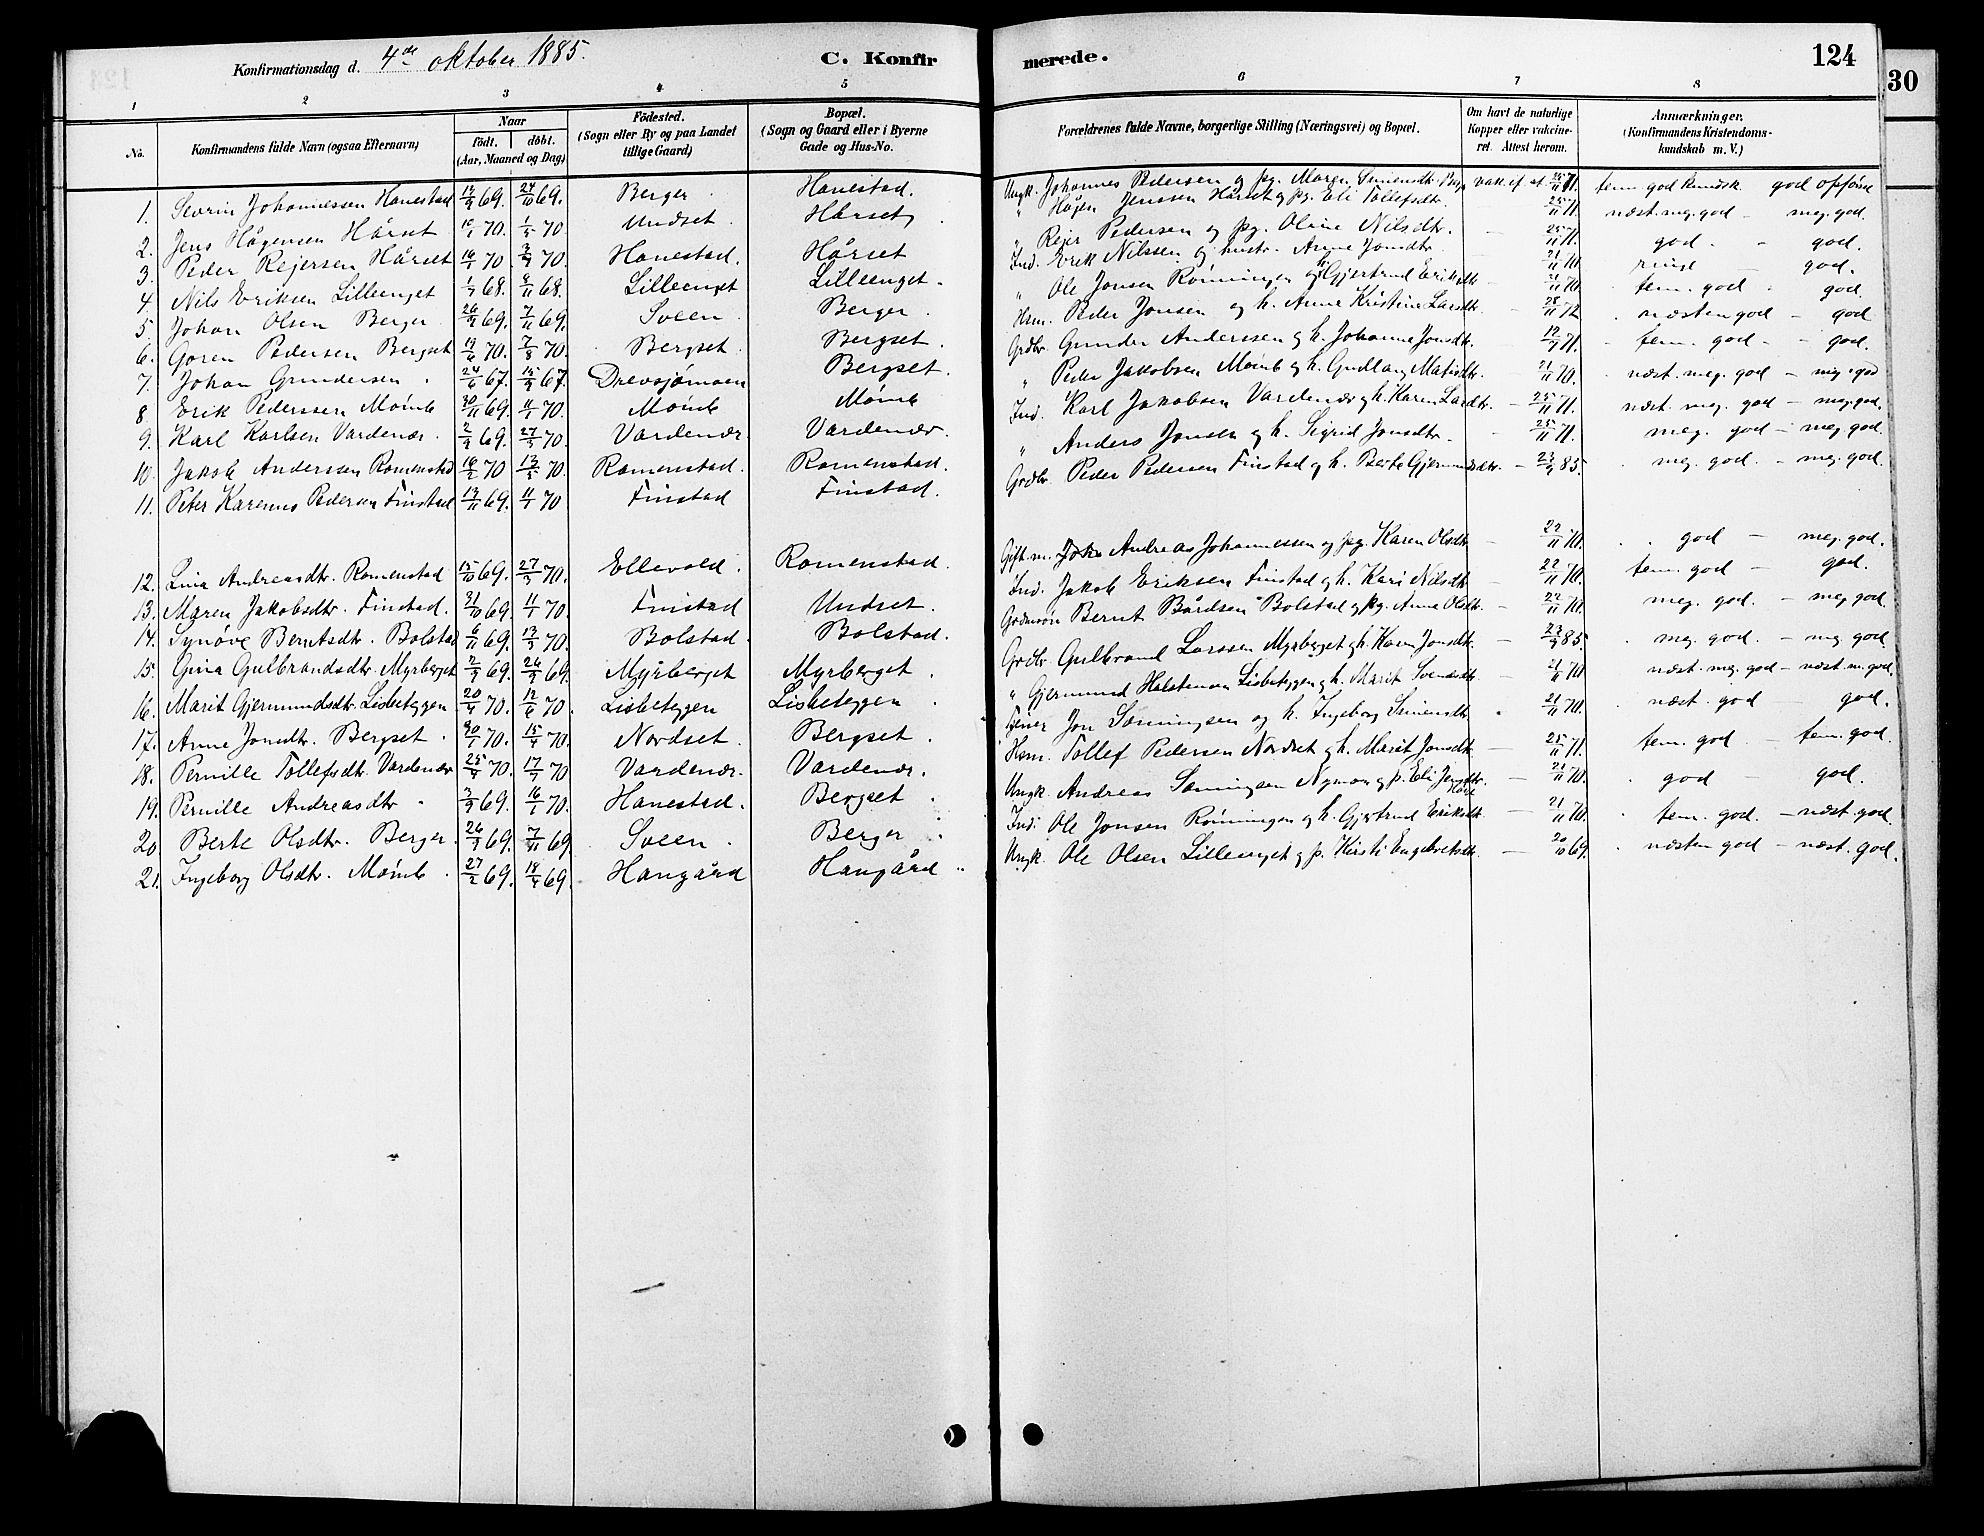 Konfirmationsdag d. 4de oktober 1885. C. Konfir
merede. 124
30
1 2 3 4 5
6 7 8
No. Konfirmandens fulde Navn (ogsaa Efternavn) Naar födt. döbt. (Aar, Maaned og Dag) Födested. (Sogn eller By og paa Landet tillige Gaard) Bopæl. (Sogn og Gaard eller i Byerne Gade og Hus-No.
Forældrenes fulde Navne, borgerlige Stilling (Næringsvei) og Bopæl. Om havt de naturlige Kopper eller vakcineret. Attest herom. Anmærkninger. (Konfirmandens Kristendomskundskab m. V.)
1. Sevrin Johannessen Hanestad 69. 24/10 69. Berger Hanestad. Ungk. Johannes Pedersen og pg. Maren 25/11 71. tem. god kundsk. god opförsel
2. Jens Hågensen Hårset 70. 1/5 70 Undset. Hårset " Hågen Jenssen Hårset og pg. Eli Tollefsdtr. 25/11 71. næst. meg. god - meg. god.
3. Peder Rejersen Hårset 70. 70. Hanestad. Hårset " Rejer Pedersen og pg. Oline Nilsdtr. 25/11 71. god - god.
4. Nils Eriksen Lilleenget 68. 6/11 68. Lilleenget Lilleenget. Ind. Erik Nilssen og hustr. Anne Jonsdtr. 21/11 70. god.
5. Johan Olsen Berger 26/9 69. 7/11 69. Sveen. Berger. " Ole Jonsen Rønningen og h. Gjertrud Eriksdtr. 21/11 70. tem. god - god.
6. Goren Pedersen Bergset 70. 7/8 70. Bergset. Bergset. Hsm. Peder Jonsen og h. Anne Kristine Larsdtr. 72 næsten god - god
7. Johan Gundersen 24/6 67. 15/9 67. Drevsjømoen Bergset. Grdbr. Gunder Anderssen og h. Johanne Jonsdtr. 71. tem. god - god.
8. Erik Pederssen Mömb 30/11 69. 11/1 70. Mömb Mömb " Peder Jakobsen Mömb og h. Gudlaug 21/11 70. næst. meg. god - meg. god
9. Karl Karlsen Vardenær. 2/9 69. 27/3 70. Vardenær. Vardenær. Ind. Karl Jakobsen Vardenær og h. Karen Larsdtr. 25/11 71. næst. meg. god - meg. god.
10. Jakob Anderssen Romenstad 16/2 70 13/5 70. Romenstad. Romenstad. " Anders Jonsen og h. Sigrid Jonsdtr. 25/11 71. meg. god - meg. god.
11. Peter Karenus Pedersen Finstad 13/11 69. 11/1 70 Finstad Finstad. Grdbr. Peder Pedersen Finstad og h. Berte Gjermundsdtr. 23/9 85. meg. god. - meg. god.
12. Lina Andreasdtr. Romenstad 15/10 69. 27/3 70. Ellevold. Romenstad. Gift m. Andreas Johannessen og pg. Karen Olsdtr. 22/11 70. god - meg. god.
13. Maren Jakobsdtr. Finstad. 31/10 69. 11/1 70. Finstad Undset. Ind. Jakob Eriksen Finstad og h. Kari Nilsdtr. 22/11 70. tem. god - god.
14. Synöve Berntsdtr. Bolstad 6/11 69. 13/3 70. Bolstad. Bolstad. Bernt Bårdsen Bolstad og pg. Anne Olsdtr. 22/11 70. meg. god. - meg god
15. Gina Gulbrandsdtr. Myrberget 2/9 69. 26/9 69. Myrberget Myrberget. Grdbr. Gulbrand Larssen Myrberget og h. Karen Jonsdtr. 23/9 85. meg. god. - meg. god
16. Marit Gjermundsdtr. Lisbetyggen 20/4 70. 12/6 70. Lisbetyggen Lisbetyggen " Gjermund Halstensen Lisbetyggen og h. Marit Svendsdtr. 70 næst. meg. god - næst. m. god.
17. Anne Jonsdtr. Bergset. 30/1 70. 15/4 70. Nordset. Bergset. Jon Sømmingsen og h. Ingeborg Simensdtr. 21/11 70. næst. god - god.
18. Pernille Tollefsdtr. Vardenær 25/4 70. 17/7 70 Vardenær. Vardenær. Hsm. Tollef Pedersen Nordset og h. Marit Jonsdtr. 25/11 71. tem. god - tem. god.
19. Pernille Andreasdtr. 69. 16/1 70. Hanestad. Bergset. Ungk. Andreas Sømmingsen Nymoen og p. Eli Jensdtr. 21/11 70. god god.
20. Berte Olsdtr. Berger. 26/9 69. 7/11 69. Sveen. Berger. Ind. Ole Jonsen Rønningen og h. Gjertrud Eriksdtr. 21/11 70. tem. god. - næst. god.
21. Ingeborg Olsdtr. Mömb. 27/2 69. 18/4 69. Haugård Haugård Ungk. Ole Olsen Lilleenget og p. Kirsti Engebretsdtr. 20/10 69. næsten god - næst. god.